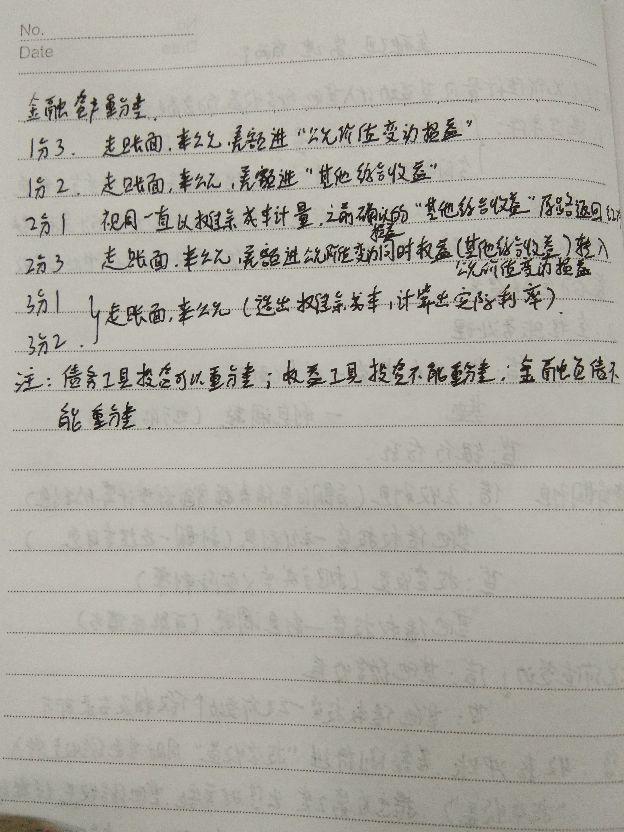 No.
Date
金融资产重分类.
1分3. 走账面,来公允,差额进“公允价值变动损益”
1分2. 走账面,来公允,差额进“其他综合收益”
2分1 视同一直以摊余成本计量,之前确认的“其他综合收益”原路返回
损益
2分3 走账面,来公允,差额进公允价值变动同时权益(其他综合收益)转入
公允价值变动损益
3分1
3分2. 走账面,来公允(送出摊余成本,计算出实际利率).
注:债务工具投资可以重分类;权益工具投资不能重分类;金融负债不
能重分类.